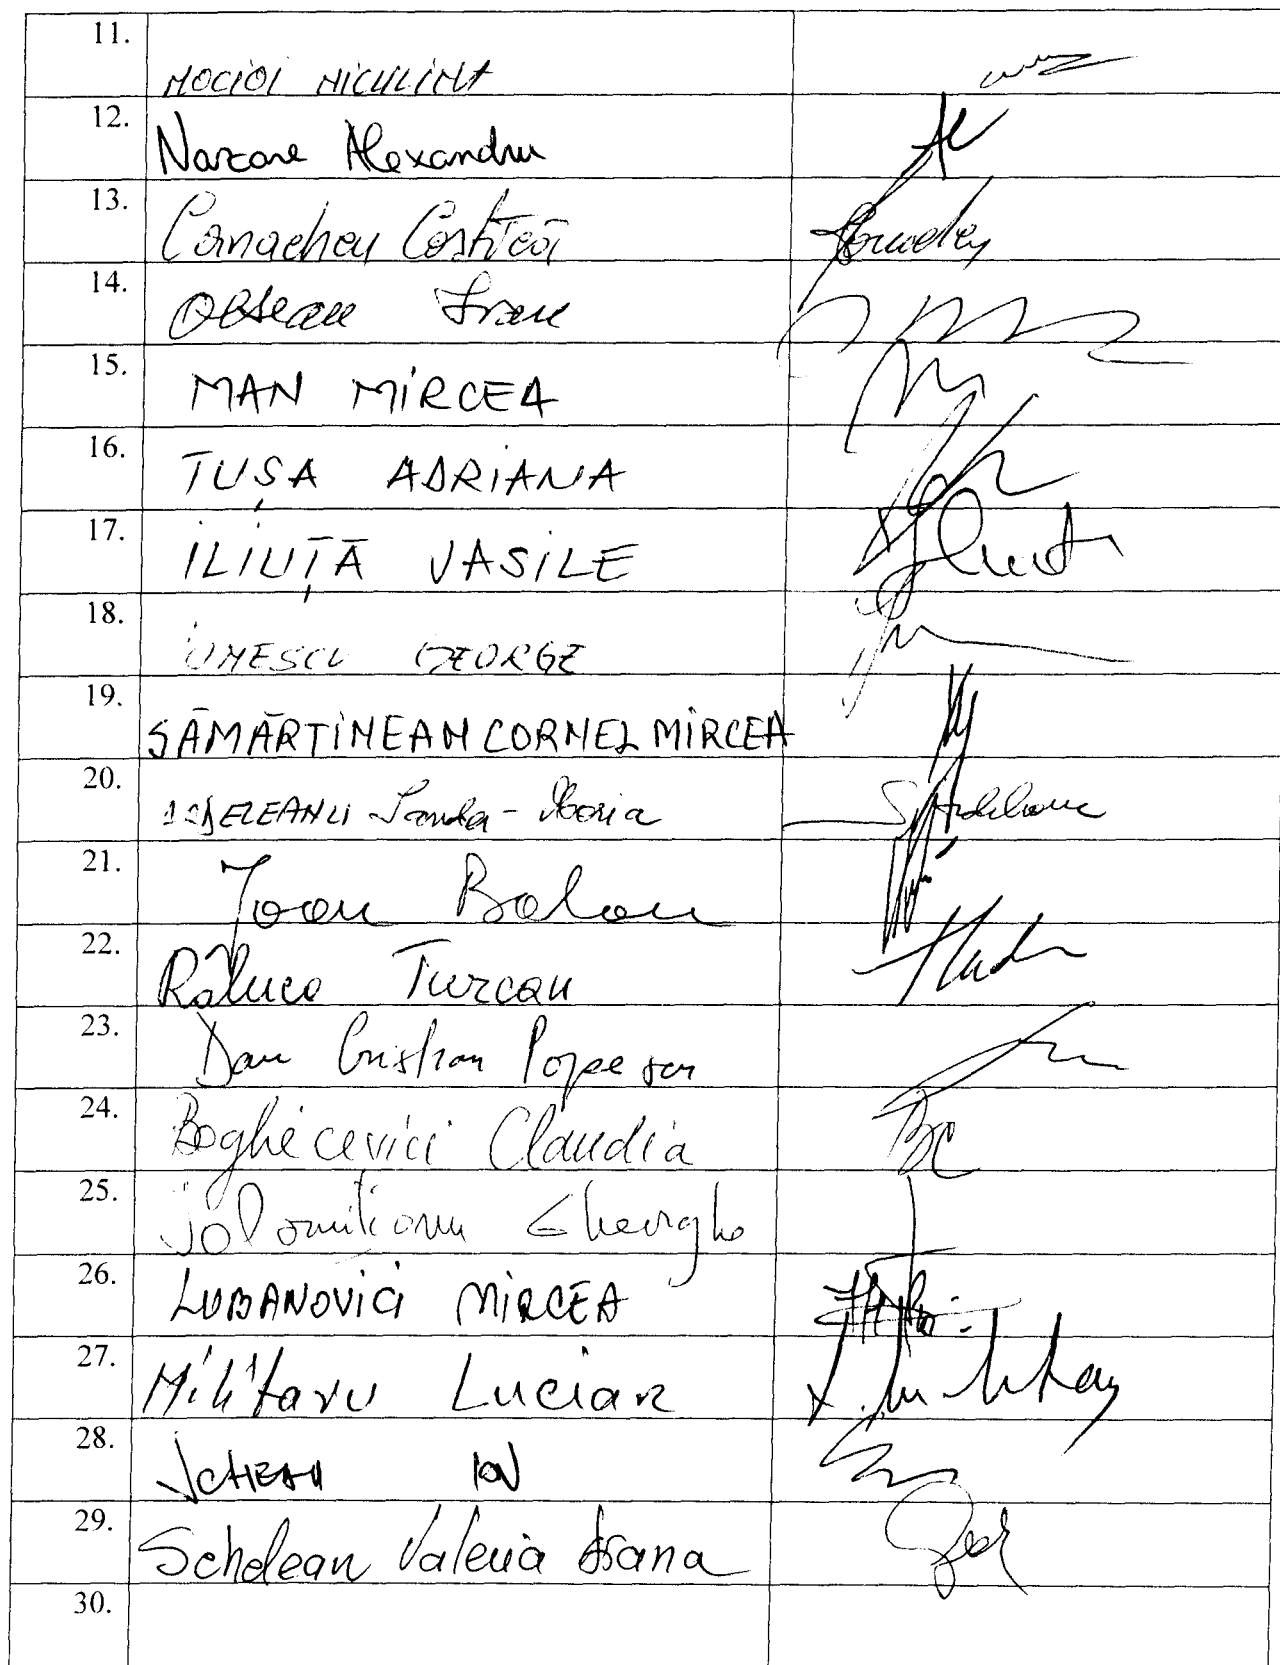 11. MOCIOI NICULINA
12. Nazare Alexandru
13. Canacheu Costică
14. Obsean Ioan
15. MAN MIRCEA
16. TUȘA ADRIANA
17. ILIUȚĂ VASILE
18. IONESCU GEORGE
19. SĂMĂRTINEAN CORNEL MIRCEA
20. ARDELEANU Sanda-Maria
21. Ioan Balan
22. Raluca Turcan
23. Dan Cristian Popescu
24. Boghicevici Claudia
25. Ialomitianu Gheorghe
26. LUBANOVICI MIRCEA
27. Militaru Lucian
28. ION
29. Schelean Valeria Diana
30.